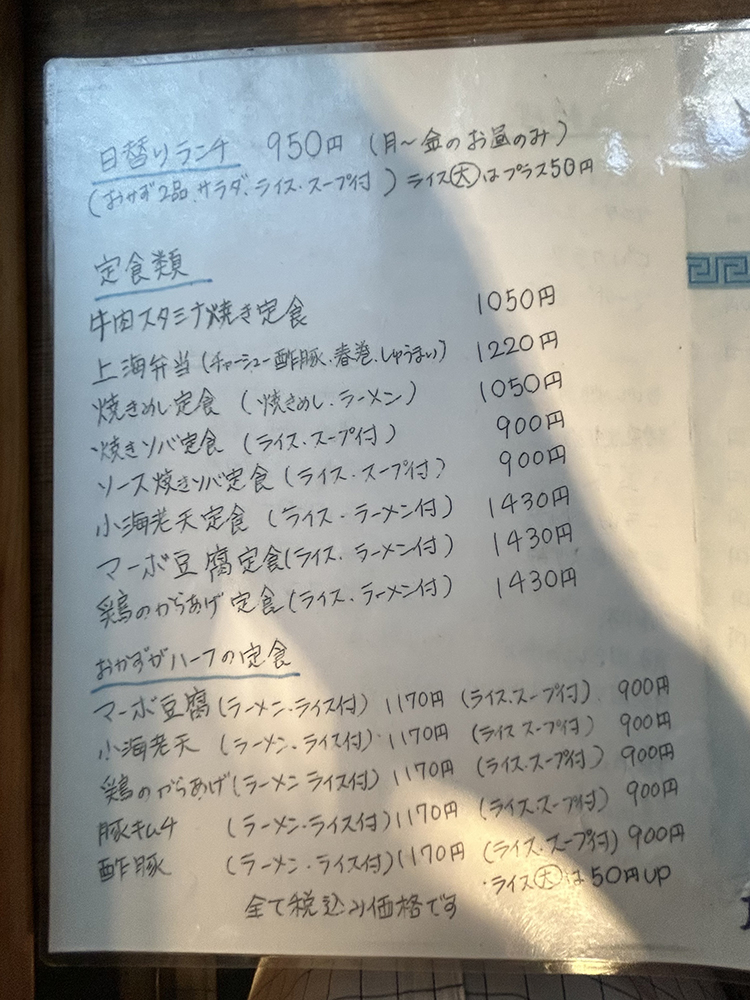 日替りランチ 950円 (月〜金のお昼のみ)
(おかず2品、サラダ、ライス・スープ付) ライス㊛はプラス50円
定食類
牛肉スタミナ焼き定食 1050円
上海弁当(チャーシュー酢豚、春巻、しゅうまい) 1220円
焼きめし定食 (焼きめし、ラーメン) 1050円
焼きソバ定食 (ライス・スープ付) 900円
ソース焼きソバ定食 (ライス・スープ付) 900円
小海老天定食 (ライス・ラーメン付) 1430円
マーボ豆腐定食(ライス、ラーメン付) 1430円
鶏のからあげ定食(ライス、ラーメン付) 1430円
おかずがハーフの定食
マーボ豆腐 (ラーメン・ライス付) 1170円 (ライス・スープ付) 900円
小海老天 (ラーメン・ライス付) 1170円 (ライス スープ付) 900円
鶏のからあげ(ラーメン ライス付) 1170円 (ライス・スープ付) 900円
豚キムチ (ラーメン・ライス付) 1170円 (ライス・スープ付) 900円
酢豚 (ラーメン・ライス付) 1170円 (ライス・スープ付) 900円
・ライス大は50円UP
全て税込み価格です